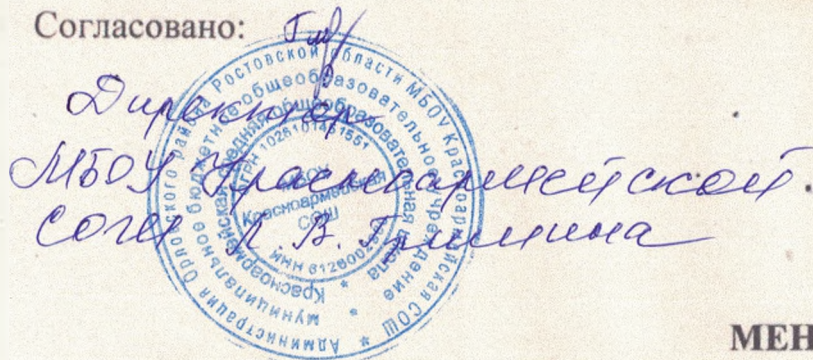 Согласовано:
Директор
МБОУ Красноармейской
СОШ Л. В.
Администрация Орловского района Ростовской области МБОУ Красноармейская СОШ
муниципальное бюджетное общеобразовательное учреждение
Красноармейская средняя общеобразовательная школа
ОГРН
МБОУ
Красноармейская
СОШ
ИНН
МЕН